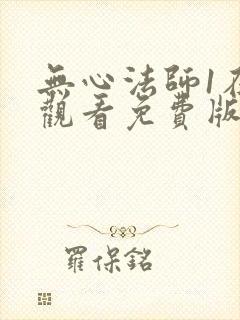 無心法師1在
觀看免費版
羅保銘